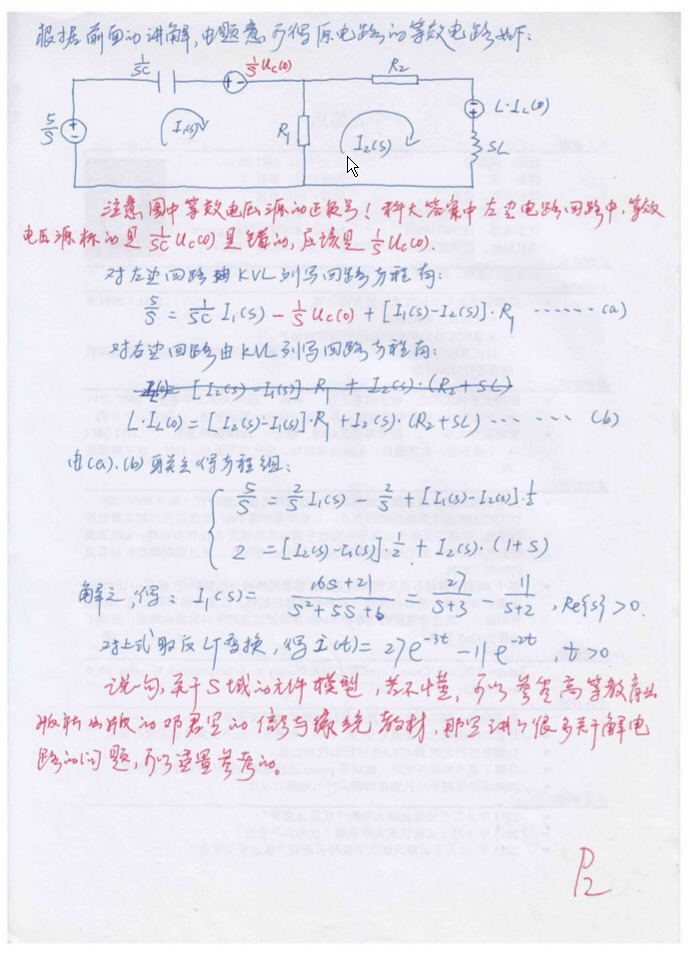 根据前面的讲解,由题意可得原电路的等效电路如下:
1/SC
1/S Uc(0)
R2
5/S
I1(s)
R1
I2(s)
L·IL(0)
SL
注意图中等效电压源的正负号!科大答案中左边电路回路中,等效
电压源标的是 1/SC Uc(0) 是错的,应该是 1/S Uc(0).
对左边回路由KVL列写回路方程有:
5/S = 1/SC I1(s) - 1/S Uc(0) + [I1(s)-I2(s)]·R1 ······ (a)
对右边回路由KVL列写回路方程有:
L·IL(0) = [I2(s)-I1(s)]·R1 + I2(s)·(R2+SL) ······ (b)
由(a).(b)联立得方程组:
5/S = 2/S I1(s) - 2/S + [I1(s)-I2(s)]·1/2
2 = [I2(s)-I1(s)]·1/2 + I2(s)·(1+S)
解之,得: I1(s) = (16S+21)/(S²+5S+6) = 27/(S+3) - 11/(S+2), Re{s}>0.
对上式取反LT变换,得i(t)= 27e^-3t -11e^-2t , t>0
说句,关于S域的元件模型,若不懂,可以参考高等教育出
版社出版的邓君里的信号与线统教材,那里讲了很多关于解电
路的问题,可以适量参考的。
P2